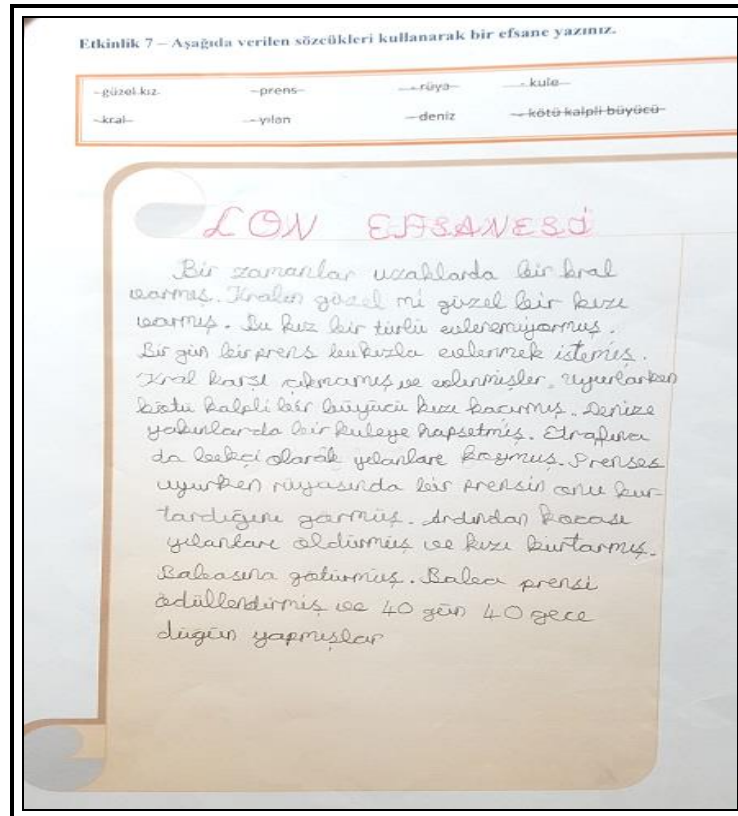 Etkinlik 7 – Aşağıda verilen sözcükleri kullanarak bir efsane yazınız.
-güzel kız -prens- -rüya- -kule-
-kral- -yılan -deniz -kötü kalpli büyücü-
LON EFSANESİ
Bir zamanlar uzaklarda bir kral
varmış. Kralın güzel mi güzel bir kızı
varmış. Bu kız bir türlü evlenemiyormuş.
Bir gün bir prens bu kızla evlenmek istemiş.
Kral karşı çıkmamış ve evlenmişler. Uyurlarken
kötü kalpli bir büyücü kızı kaçırmış. Denize
yakınlarda bir kuleye hapsetmiş. Etrafına
da bekçi olarak yılanları koymuş. Prenses
uyurken rüyasında bir prensin onu kur-
tardığını görmüş. Ardından kocası
yılanları öldürmüş ve kızı kurtarmış.
Babasına götürmüş. Baba prensi
ödüllendirmiş ve 40 gün 40 gece
düğün yapmışlar